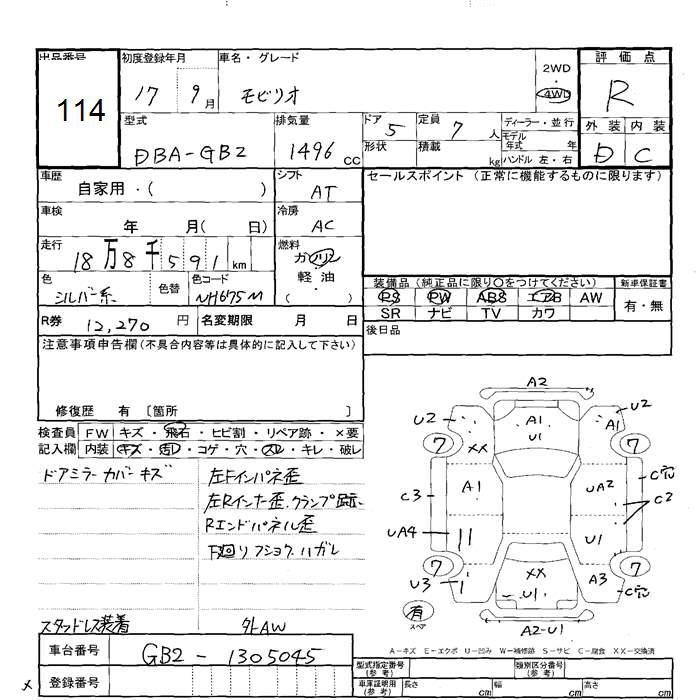 出品番号
114
初度登録年月
17 9月
車名・グレード
モビリオ
2WD
・
4WD
評価点
R
外装 内装
D C
型式
DBA-GB2
排気量
1496 cc
ドア 5
形状
定員 7 人
積載 kg
ディーラー・並行
モデル年式 年
ハンドル 左・右
車歴
自家用・( )
シフト
AT
セールスポイント (正常に機能するものに限ります)
車検
年 月( 日)
冷房
AC
走行
18万8千591km
燃料
ガソリン
軽・油
( )
色
シルバー系
色替
色コード
NH675M
装備品 (純正品に限り○をつけてください) 新車保証書
PS PW ABS エアB AW 有・無
SR ナビ TV カワ
R券 12,270 円 名変期限 月 日
後日品
注意事項申告欄(不具合内容等は具体的に記入して下さい)
修復歴 有 〔箇所 〕
検査員 FW キズ・飛石・ヒビ割・リペア跡・×要
記入欄 内装 キズ・汚レ・コゲ・穴・スレ・キレ・破レ
ドアミラーカバーキズ
左Fインパネ歪
左Rインナー歪、クランプ跡、
Rエンドパネル歪
下廻りフショクハガレ
スタッドレス装着
外AW
A2
U2 A1 U1 A1 U2
XX
7 7
C3 A1 UA2 C穴
C2
UA4 U1
7 7
U3 XX A3 C穴
U1
有
スペア
A2-U1
A-キズ E-エクボ U-凹み W-補修跡 S-サビ C-腐食 XX-交換済
車台番号 GB2-1305045
型式指定番号(参考) 類別区分番号(参考)
登録番号
車庫証明用(参考) 長さ cm 幅 cm 高さ cm